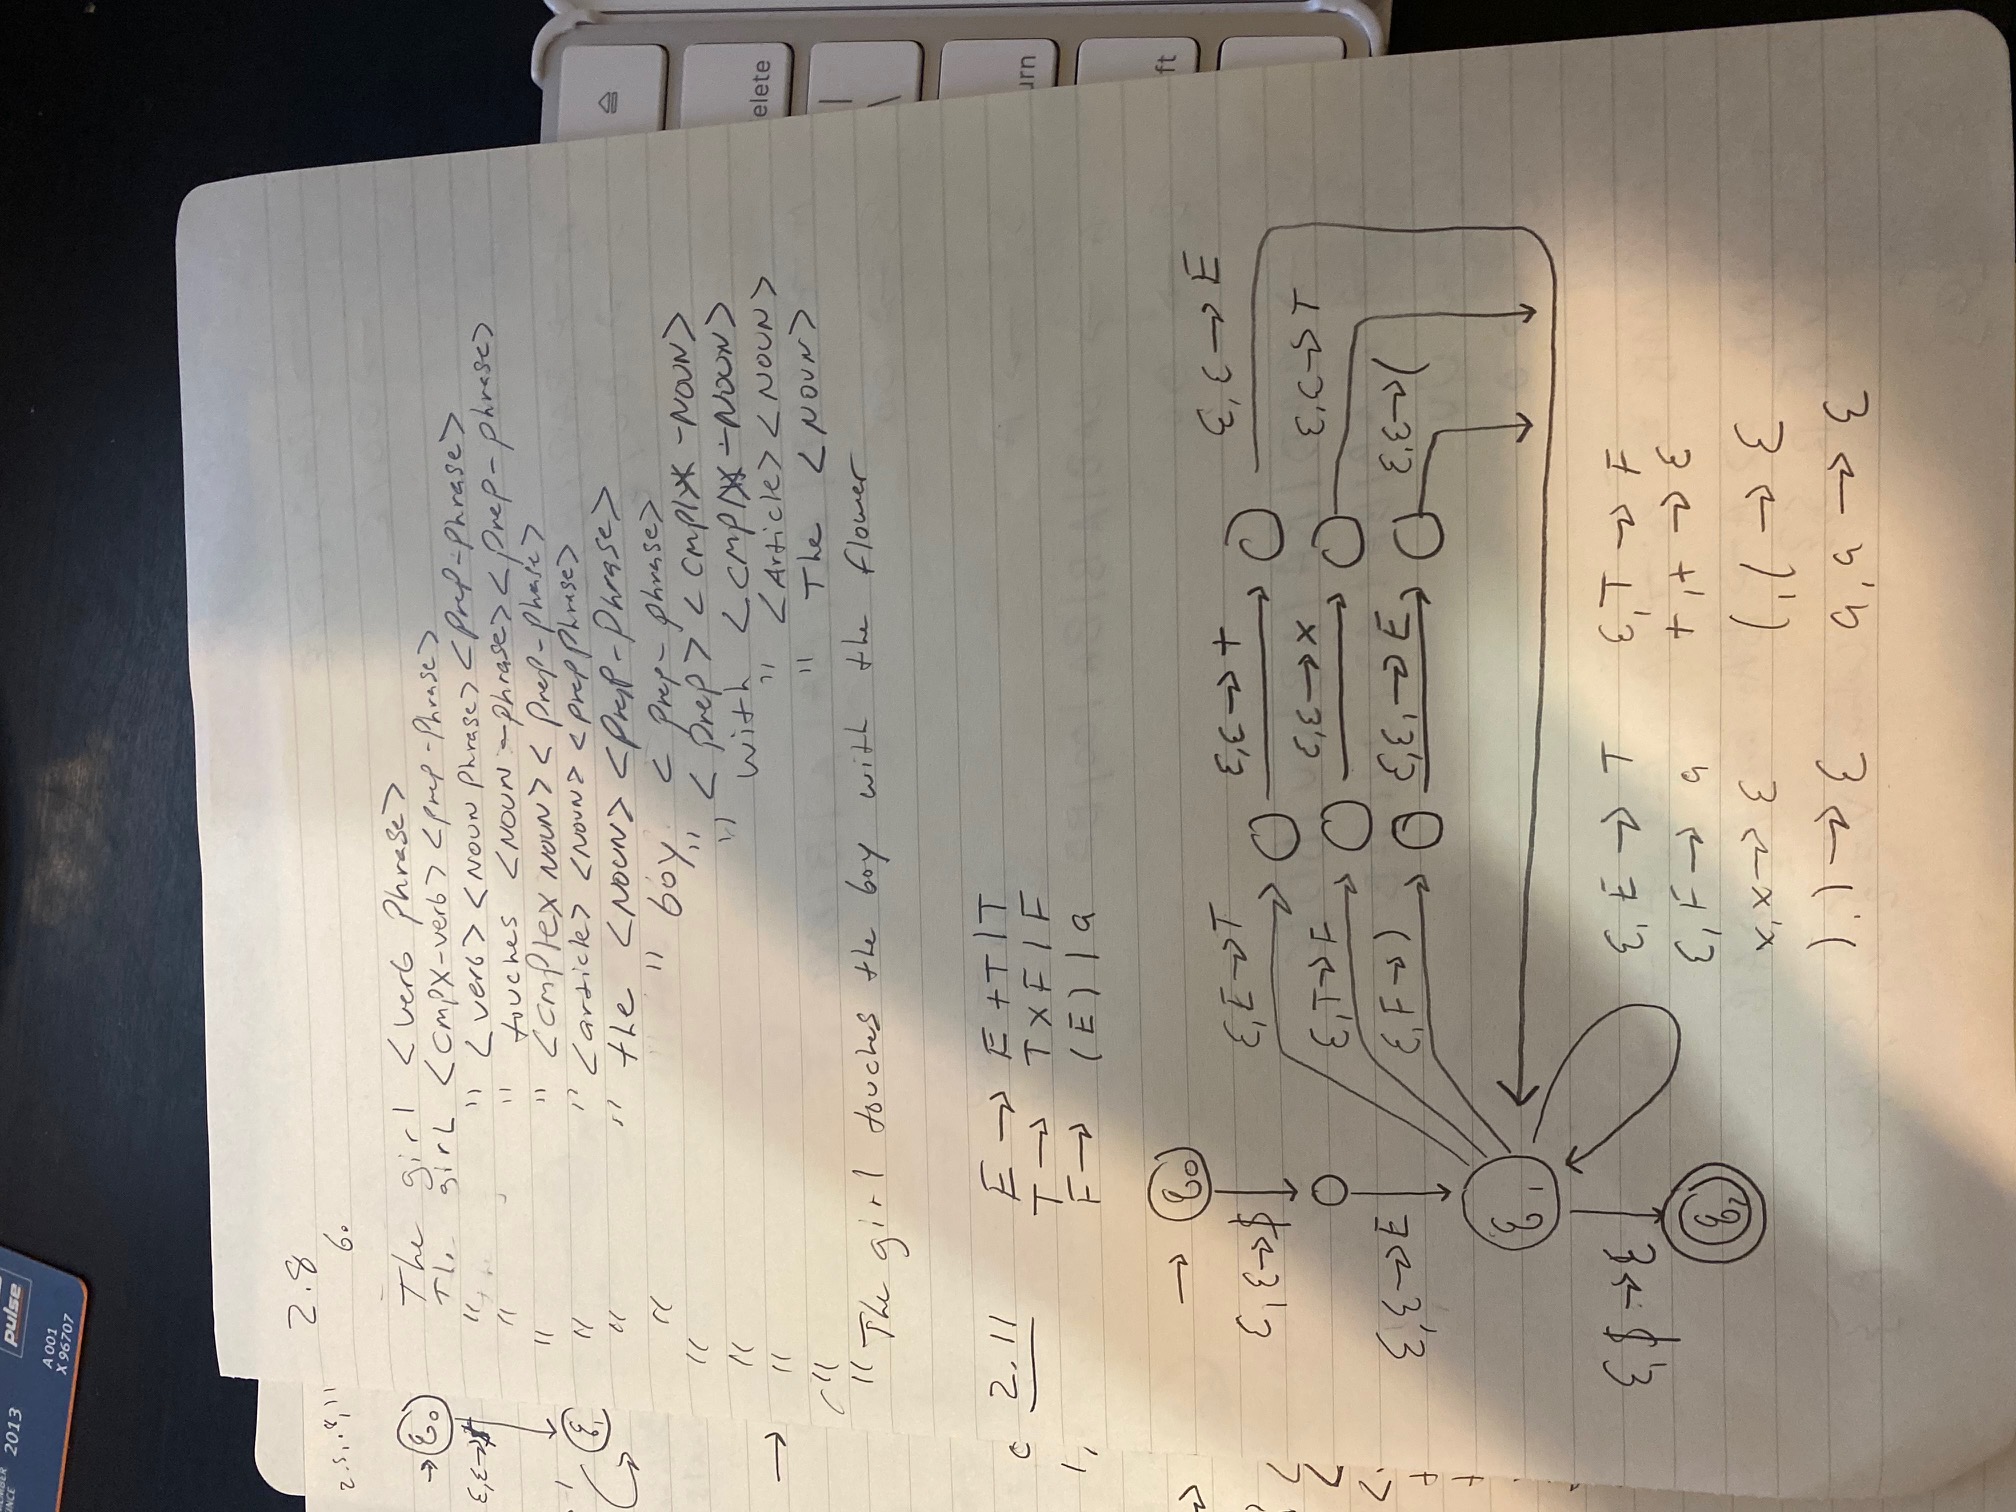 2013
pulse
A 001
X 96707
2.8
6.
The girl <verb phrase>
The girl <cmpx-verb> <prep-phrase>
" " <verb> <NOUN phrase> <prep-phrase>
" " touches <NOUN-phrase> <prep-phrase>
" " <complex NOUN> <prep-phrase>
" " <article> <NOUN> <prep phrase>
" " the <NOUN> <prep-phrase>
" " boy <prep-phrase>
" " <prep> <cmplx-NOUN>
" " with <cmplx-NOUN>
" " <Article> <NOUN>
" " The <NOUN>
" The girl touches the boy with the flower
2.11
E → E+T|T
T → TxF|F
F → (E)|a
→ q₀
ε,ε→$
ε,ε→E
q₁
ε,$→ε
q₂
ε,E→T
ε,ε→+
ε,ε→E
ε,T→F
ε,ε→x
ε,ε→T
ε,F→)
ε,ε→E
ε,ε→(
ε,E→T ε,T→F
ε,F→a +,+→ε
x,x→ε ),)→ε
(,(→ε a,a→ε
2.5,.8,11
→ q₀
ε,ε→$
q₁
delete